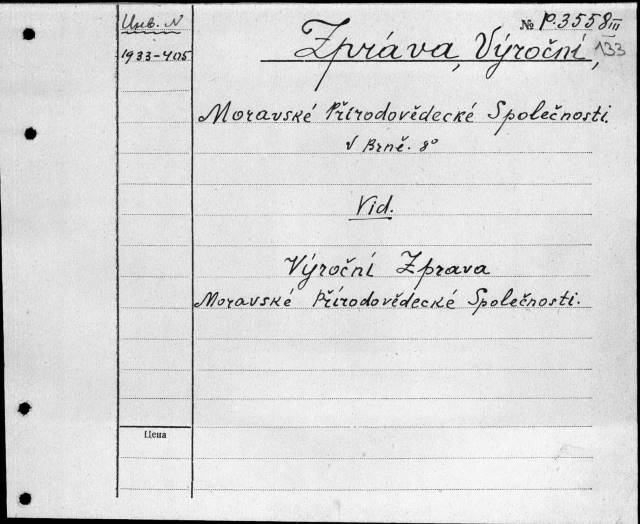 Инв. N
1933-405
№ P.3558 III
133
Zpráva, Výroční,
Moravské Přírodovědecké Společnosti.
V Brně. 8°
Vid.
Výroční Zprava
Moravské Přírodovědecké Společnosti.
Цена